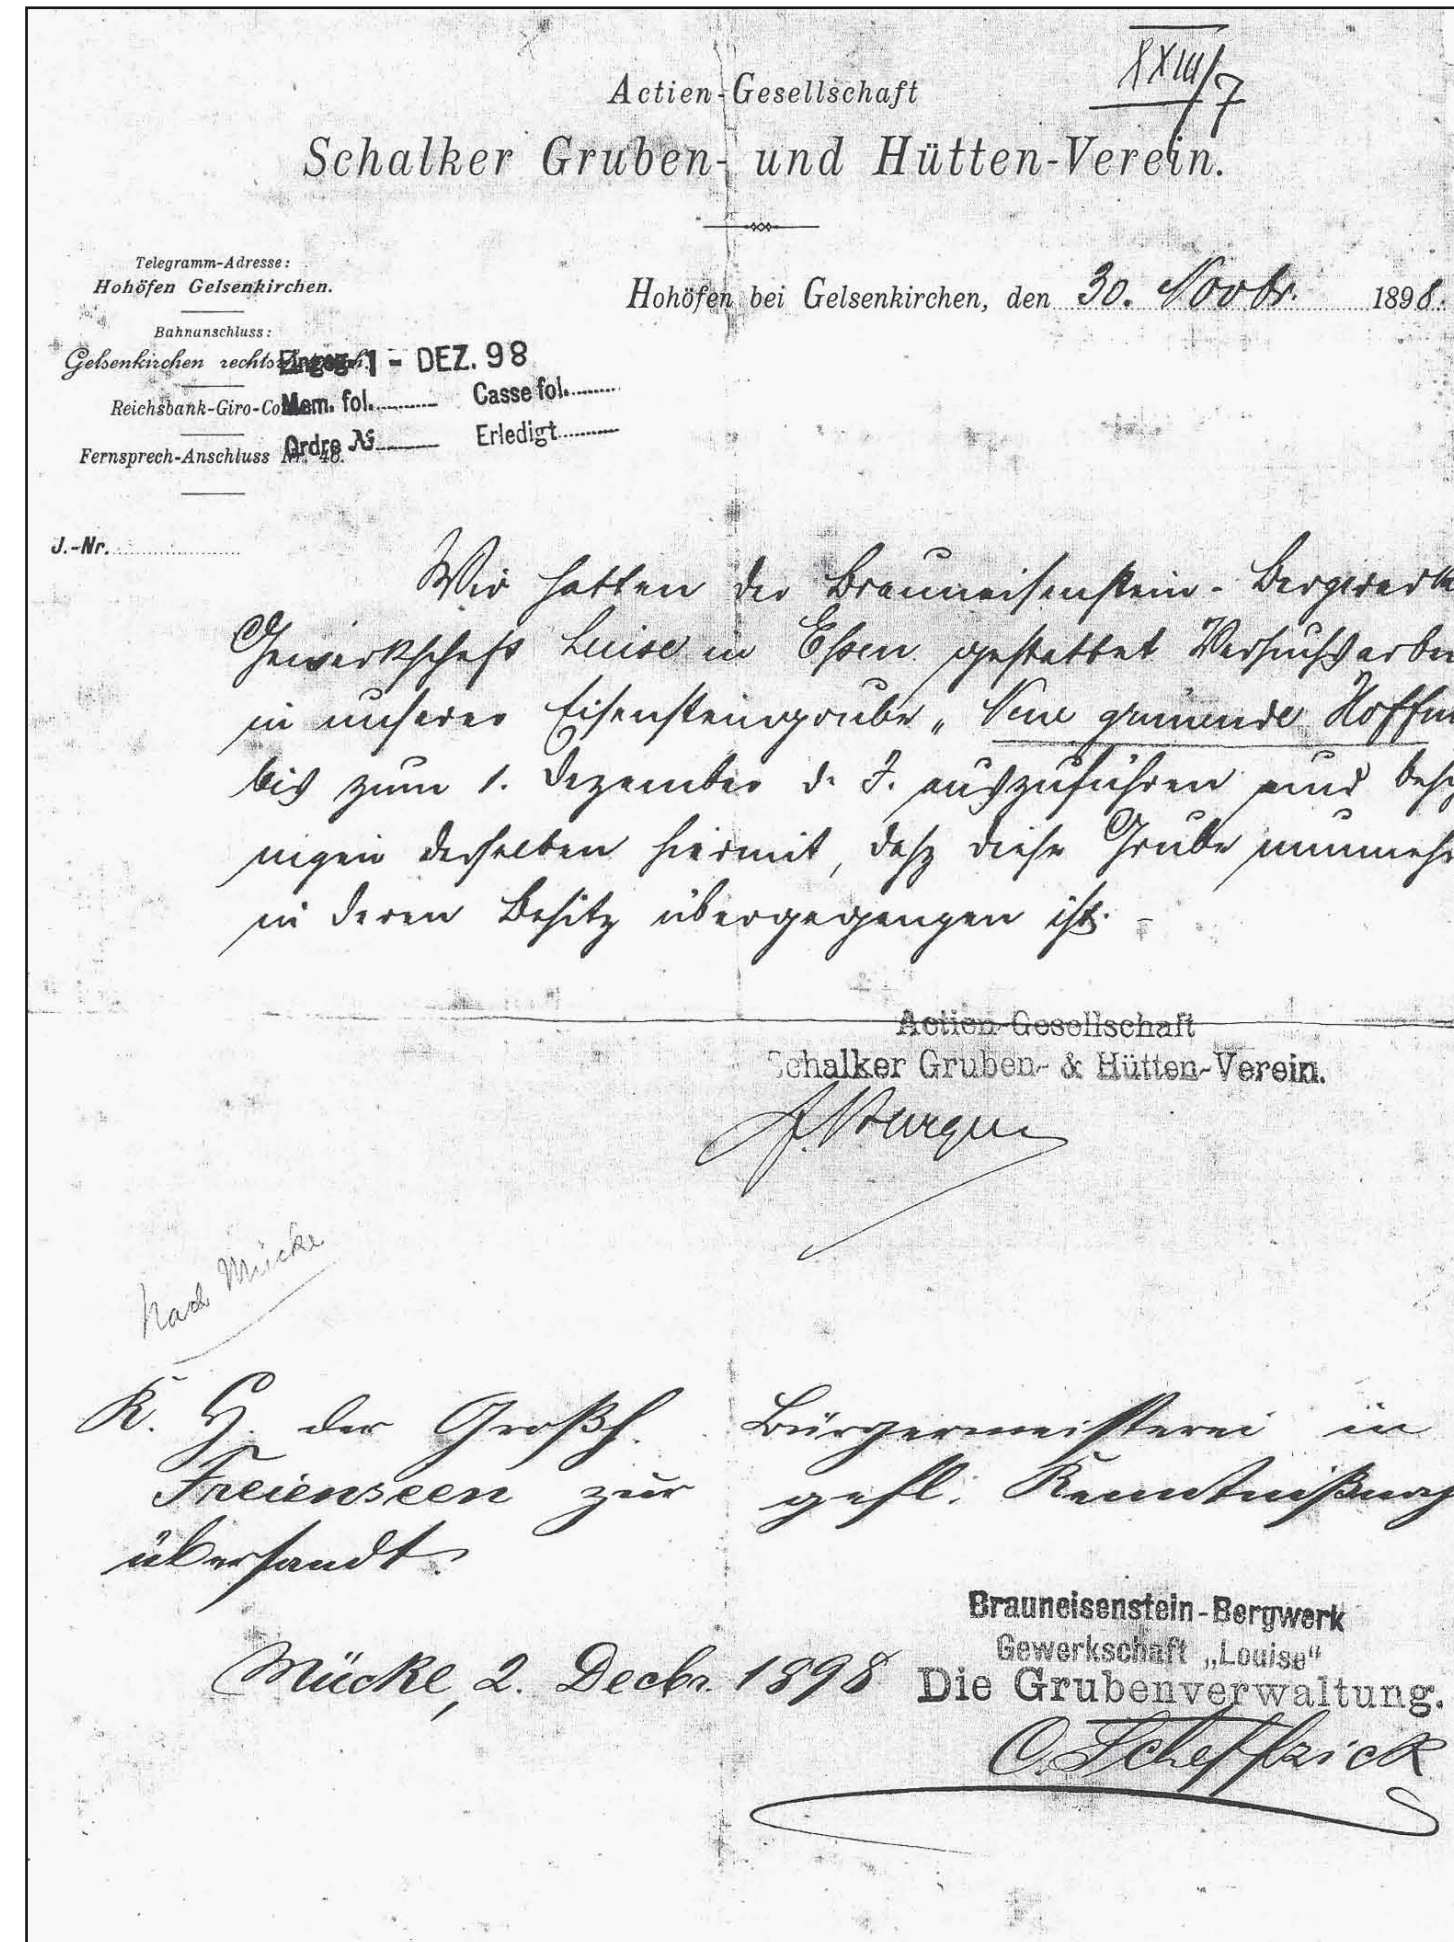 XXIII/7
Actien-Gesellschaft
Schalker Gruben- und Hütten-Verein.
Telegramm-Adresse:
Hohöfen Gelsenkirchen.
Hohöfen bei Gelsenkirchen, den 30. Novbr. 1898.
Bahnanschluss:
Gelsenkirchen
1 - DEZ. 98
Reichsbank-Giro-Co
Mem. fol. Casse fol.
Ordre № Erledigt
Fernsprech-Anschluss Nr. 48.
J.-Nr.
Wir hatten der Brauneisenstein-Bergwerk
Gewerkschaft Luise in Essen gestattet Versuchsarbei
in unserer Eisensteingrube „Neue grünende Hoffnu
bis zum 1. Dezember d. J. auszuführen und besch
nigen derselben hiermit, dasz diese Grube nunmehr
in deren Besitz übergegangen ist. -
Actien-Gesellschaft
Schalker Gruben- & Hütten-Verein.
Nach Mücke
K. H. der Großh. Bürgermeisterei in
Freienseen zur gefl. Kenntnißnah
übersandt.
Brauneisenstein-Bergwerk
Gewerkschaft „Louise“
Mücke, 2. Decbr. 1898
Die Grubenverwaltung.
O. Scheffzick